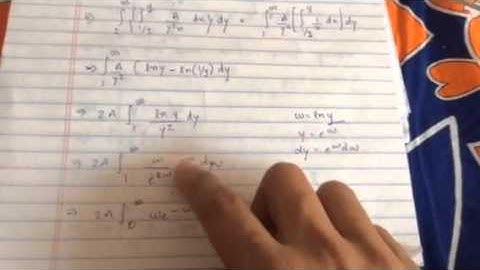 ⇒ ∫₁^∞ [∫_{1/y}^y A/(y²x) dx] dy = ∫₁^∞ A/y² [∫_{1/y}^y 1/x dx] dy
⇒ ∫₁^∞ A/y² (ln y − ln(1/y)) dy
⇒ 2A ∫₁^∞ ln y/y² dy
ω = ln y
y = e^ω
dy = e^ω dω
⇒ 2A ∫₁^∞ ω
⇒ 2A ∫₀^∞ ωe^−ω